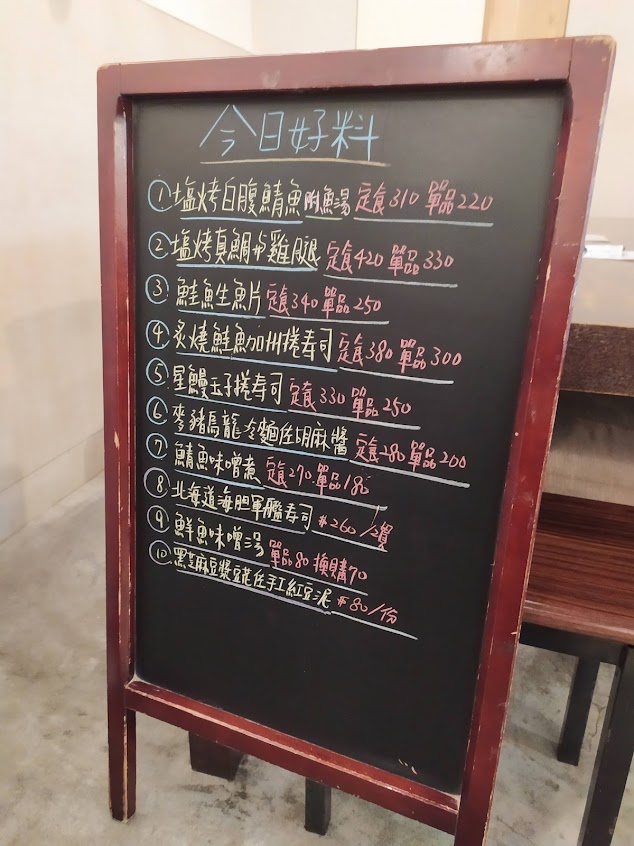 今日好料
①塩烤白腹鯖魚附魚湯 定食310 單品220
②塩烤真鯛or雞腿 定食420 單品330
③鮭魚生魚片 定食340 單品250
④炙燒鮭魚加州捲寿司 定食380 單品300
⑤星鰻玉子捲寿司 定食330 單品250
⑥麥豬烏龍冷麵佐胡麻醬 定食280 單品200
⑦鯖魚味噌煮 定食270 單品180
⑧北海道海胆軍艦寿司 $260/2貫
⑨鮮魚味噌湯 單品80 換購70
⑩黑芝麻豆漿豆花佐手工紅豆泥 $80/份